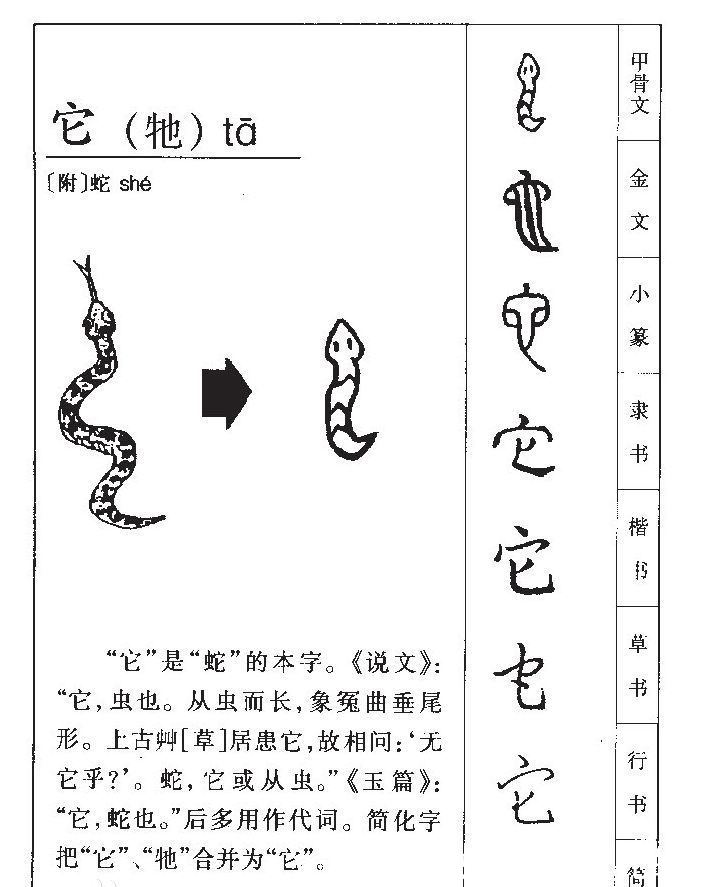 它（牠）tā
〔附〕蛇 shé
“它”是“蛇”的本字。《说文》：
“它，虫也。从虫而长，象冤曲垂尾
形。上古艸[草]居患它，故相问：‘无
它乎？’。蛇，它或从虫。”《玉篇》：
“它，蛇也。”后多用作代词。简化字
把“它”、“牠”合并为“它”。
甲骨文
金文
小篆
隶书
它
楷书
它
草书
它
行书
它
简